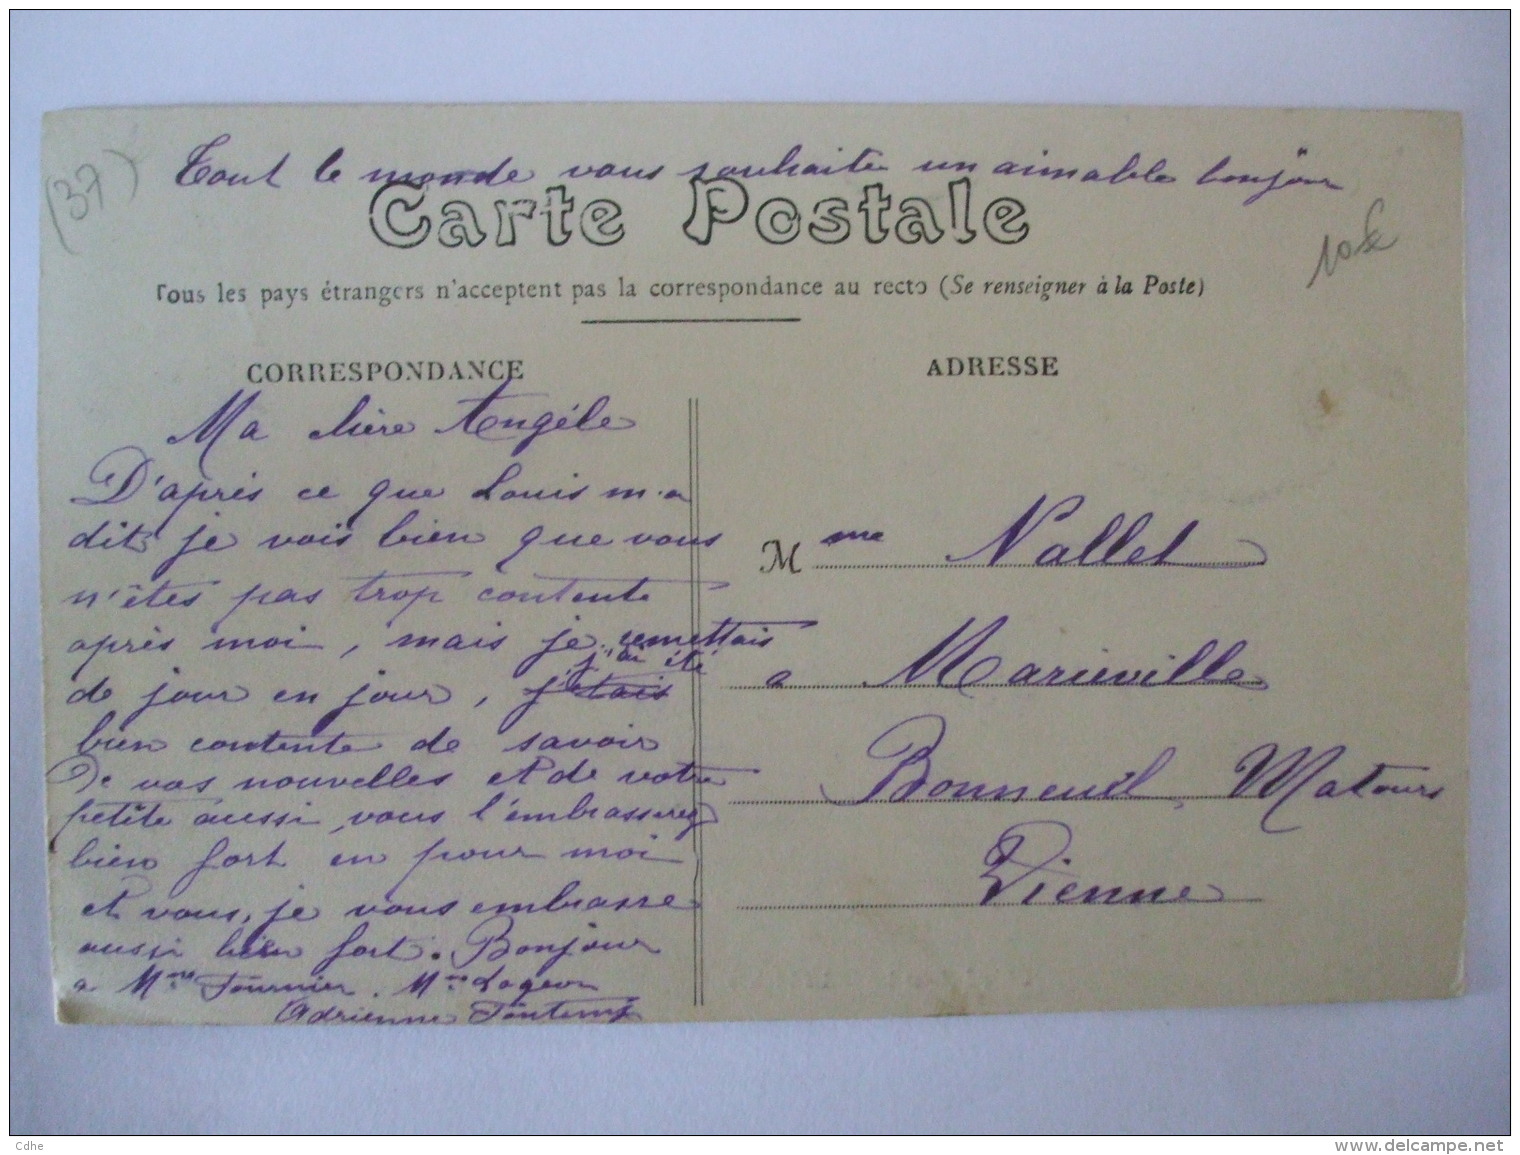 (37)
Tout le monde vous souhaite un aimable bonjour
Carte Postale
10€
Tous les pays étrangers n'acceptent pas la correspondance au recto (Se renseigner à la Poste)
CORRESPONDANCE
Ma chère Angéle
D'après ce que Louis m'a
dit je vois bien que vous
n'êtes pas trop contente
après moi, mais je remettais
j'ai été
de jour en jour, j'étais
bien contente de savoir
De vos nouvelles et de votre
petite aussi, vous l'embrasserez
bien fort en pour moi
et vous, je vous embrasse
aussi bien fort. Bonjour
a Mme Fournier. Mme Lageon
Adrienne
ADRESSE
Mme Nallet
a Marieville
Bonneuil, Matours
Vienne
Cdhe
www.delcampe.net